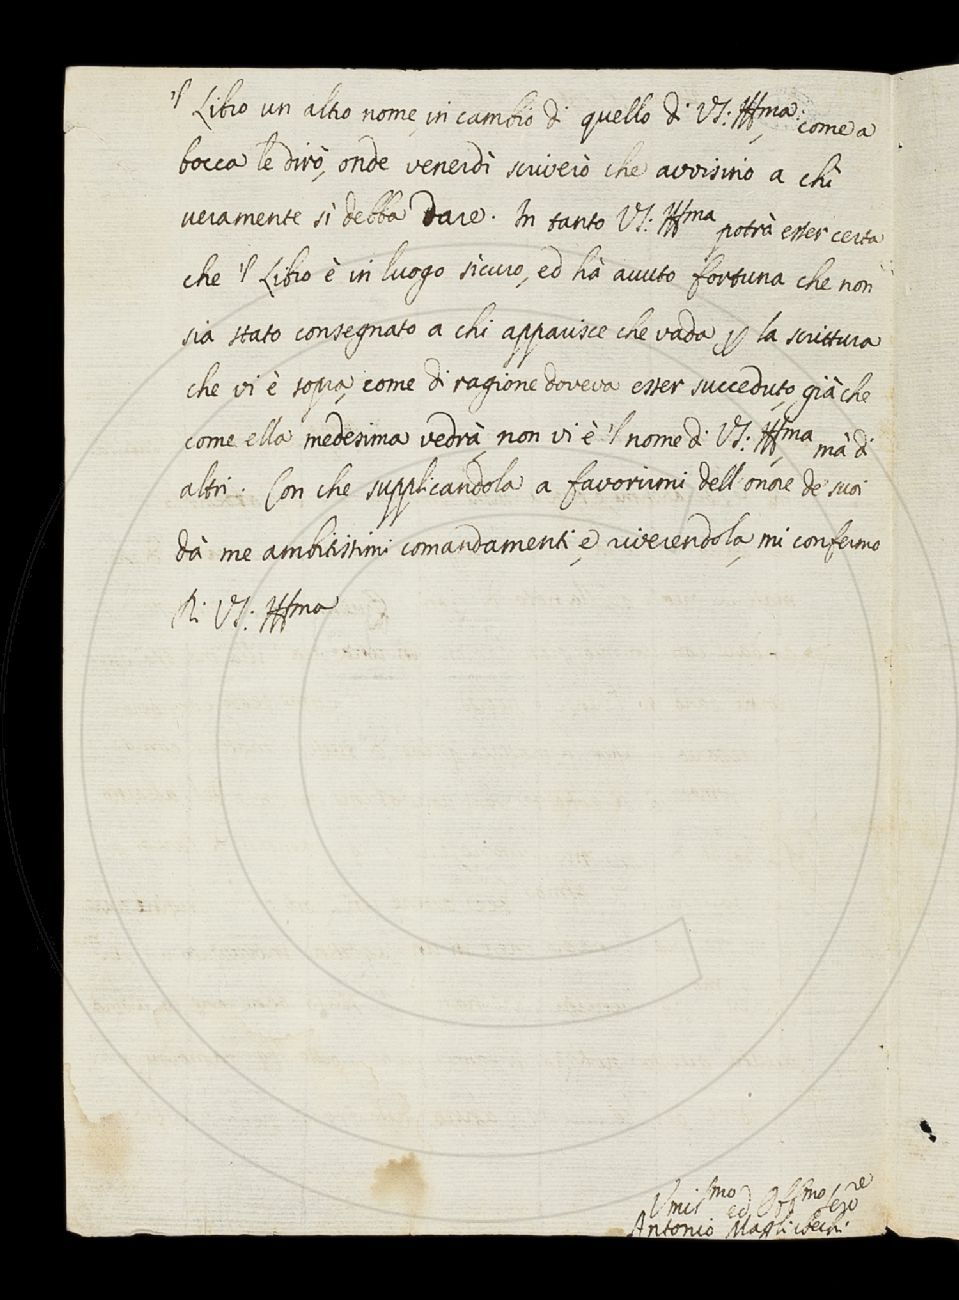 il Libro un altro nome, in cambio di quello di VS: Illma: come a
bocca le dirò, onde venerdì scriverò che avvisino a chi
veramente si debba Dare. In tanto VS: Illma potrà esser certa
che il Libro è in luogo sicuro, ed hà avuto fortuna che non
sia stato consegnato a chi apparisce che vada p la scrittura
che vi è sopra, come di ragione doveva esser succeduto, già che
come ella medesima vedrà, non vi è il nome di VS: Illma, mà di
altri. Con che supplicandola a favorirmi dell'onore de' suoi
dà me ambitissimi comandamenti, e riverendola, mi confermo
Di VS: Illma
Umilmo ed Obbmo Serore
Antonio Magliabechi